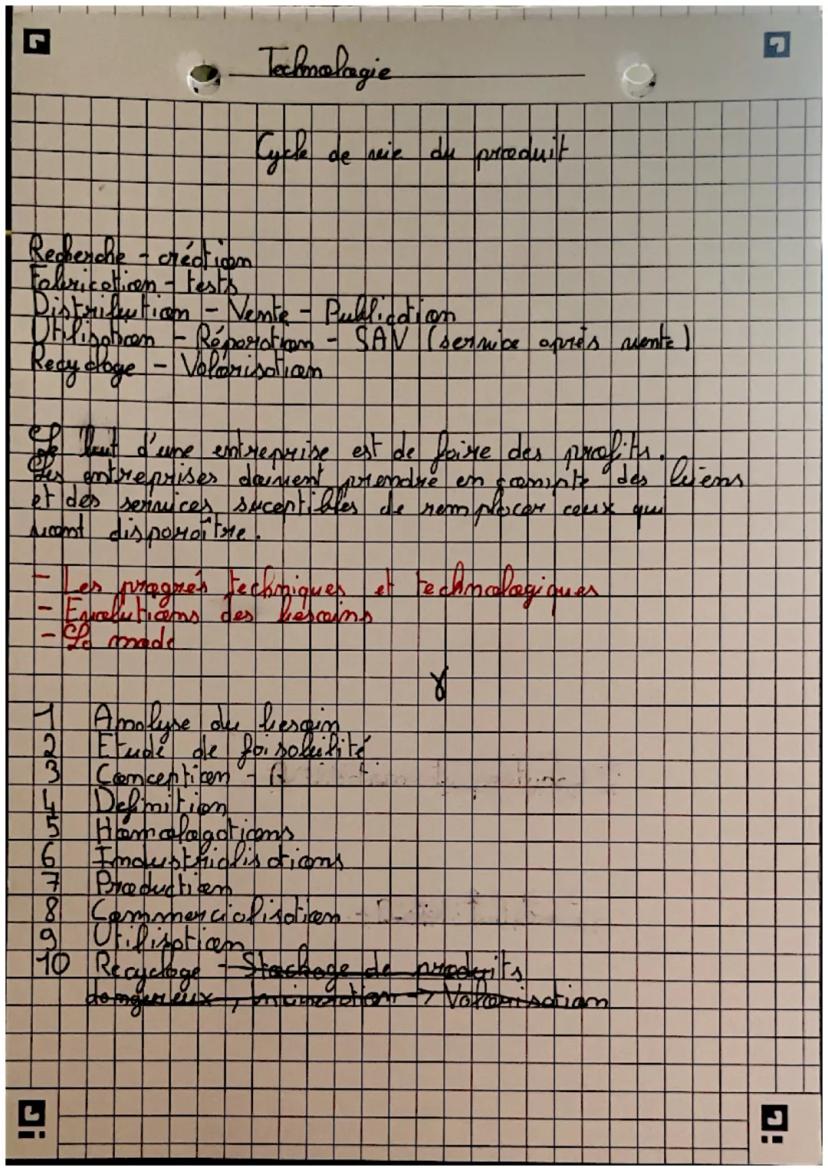 Technologie
Cycle de vie du produit
Recherche - création
Fabrication - tests
Distribution - Vente - Publication
Utilisation - Réparation - SAV (service après vente)
Recyclage - Valorisation
Le but d'une entreprise est de faire des profits.
Les entreprises doivent prendre en compte des biens
et des services suceptibles de remplacer ceux qui
vont disparaître.
- Les progrés techniques et technologiques
- Evolutions des besoins
- La mode
1 Analyse du besoin
2 Etude de faisabilité
3 Conception -
4 Définition
5 Homologations
6 Industrialisations
7 Production
8 Commercialisation
9 Utilisation
10 Recyclage - Stockage de produits
dangereux, incinération → Valorisation